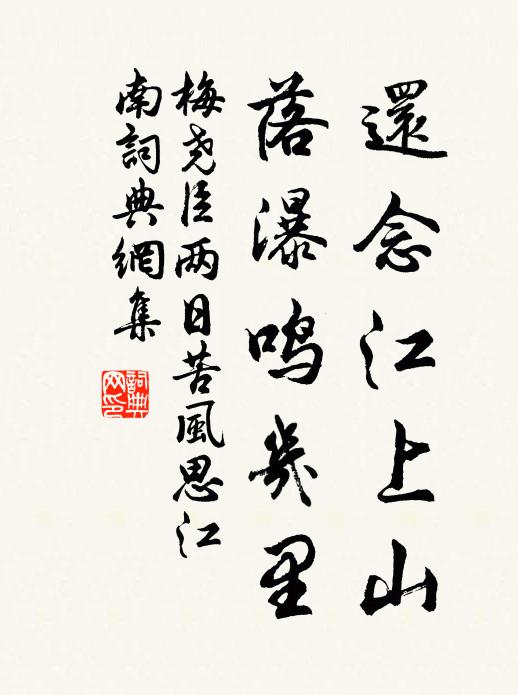 還念江上山
落瀑鳴幾里
梅堯臣两日苦風思江
南詞典網集
詞典
网印